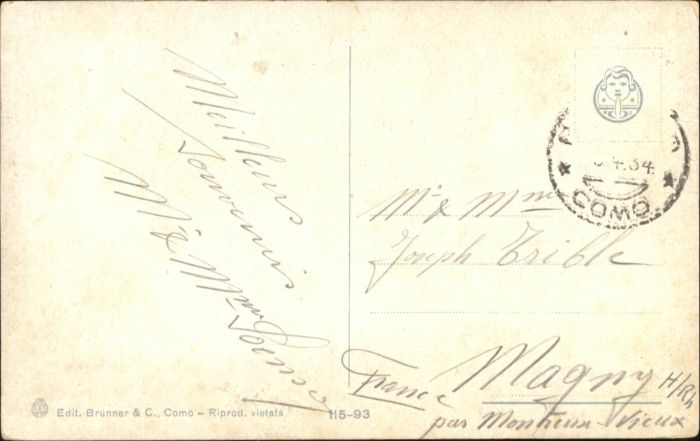 Meilleurs
Souvenirs
Mr & Mme
4.34.
COMO
Mr & Mme
Joseph Trible
Magny H/Rh
France
par Montreux-Vieux
Edit. Brunner & C., Como – Riprod. vietata
115-93